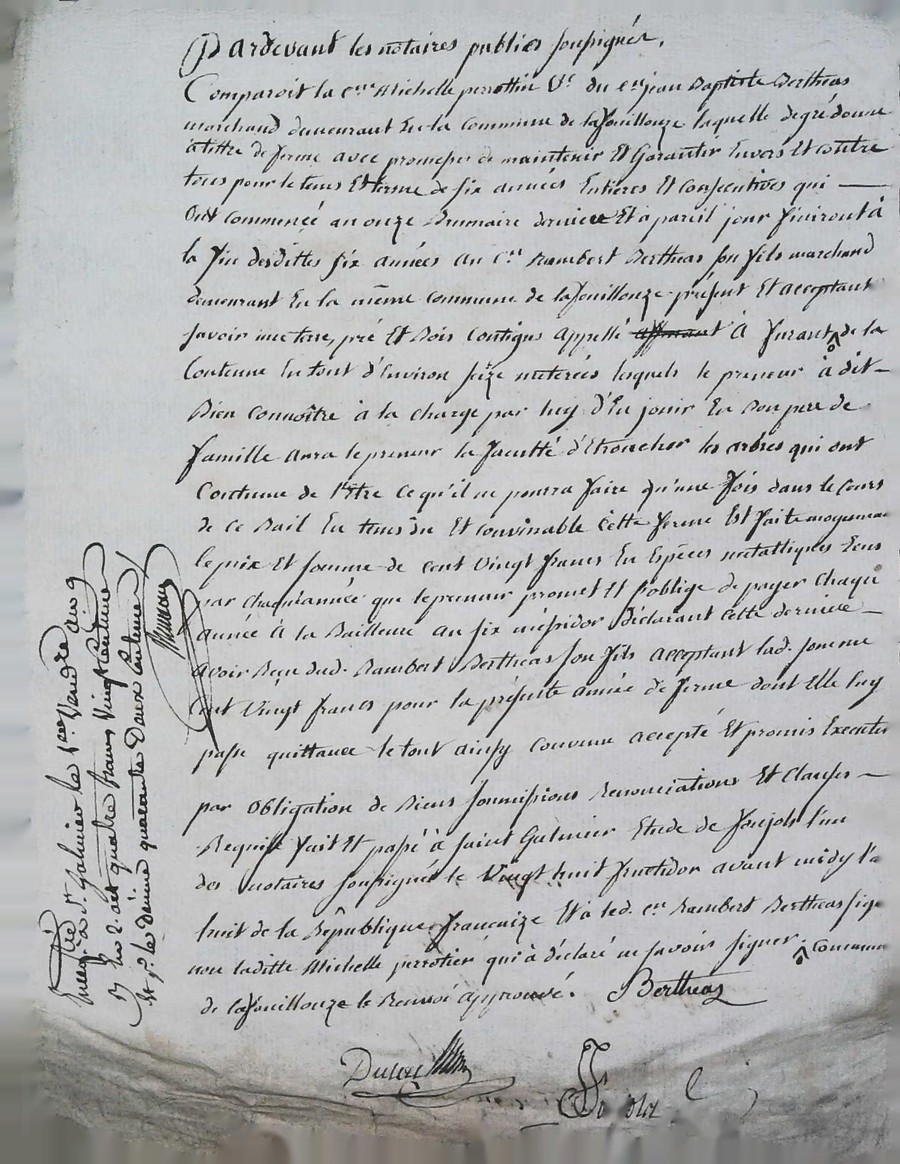 Pardevant les notaires publics soussignés,
Comparoit la c.ne Michelle perrottin V.e du c.en jean Baptiste Bertheas
marchand demeurant En la Commune de lafouillouze laquelle degré donne
atittre de ferme avec promesse de maintenir Et Garantir Envers Et contre
tous pour le tems Et terme de six années Entieres Et Consecutives qui —
Ont commencé au onze Brumaire dernier Et à pareil jour finiront à
la fin desdittes six années au C.en Rambert Bertheas son fils marchand
demeurant En la même commune de lafouillouze présent Et acceptant
Savoir une terre, pré Et Bois Contigus appellé à Jurant ^ô de la
Contenue En tout d'Environ seize meterées lesquels le preneur à dit —
Bien Connoître à la charge par luy d'En jouir En Bon pere de
famille aura le preneur la faculté d'Etroncher les arbres qui ont
Coutume de l'Etre Ce qu'il ne pourra faire qu'une fois dans le Cours
de ce Bail En tems du Et convinable Cette ferme Est faite moyennan
le prix Et somme de cent vingt francs En Espèces mettalliques
par chaque année que le preneur promet Et s'oblige de payer Chaque
année à la Bailleuse au six messidor Déclarant cette derniere —
avoir Reçu dud. Rambert Bertheas son fils acceptant lad. somme
Cent Vingt francs pour la présente année de ferme dont Elle luy
passe quittance le tout ainsy convenu accepté Et promis Executer
par Obligation de Biens Soumissions Renonciations Et Clauses —
Requise fait Et passé à Saint Galmier Etude de l'un
des notaires soussignés le Vingt huit fructidor avant midy l'a
huit de la République françaize Et à led. c.en Rambert Bertheas signé
non laditte Michelle perrotin qui à déclaré ne savoir signer. ^ô Commune
de lafouillouze le Renvoi approuvé. Bertheas
Enregistré à S.t galmier le 1.er Vendre cinq
quatre francs Vingt Centimes
quarante Deux Centimes